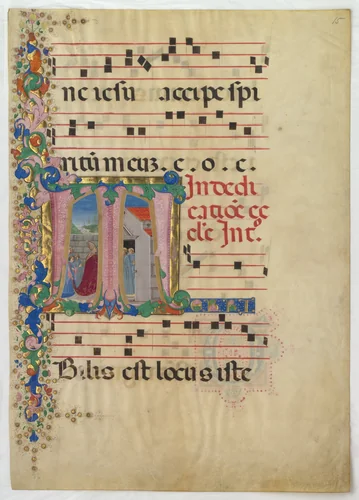 ne iesu accipe spi
ritū meuz. e. o. e.
In dedi
catiōe ec
cl'e Int°.
Bilis est locus iste